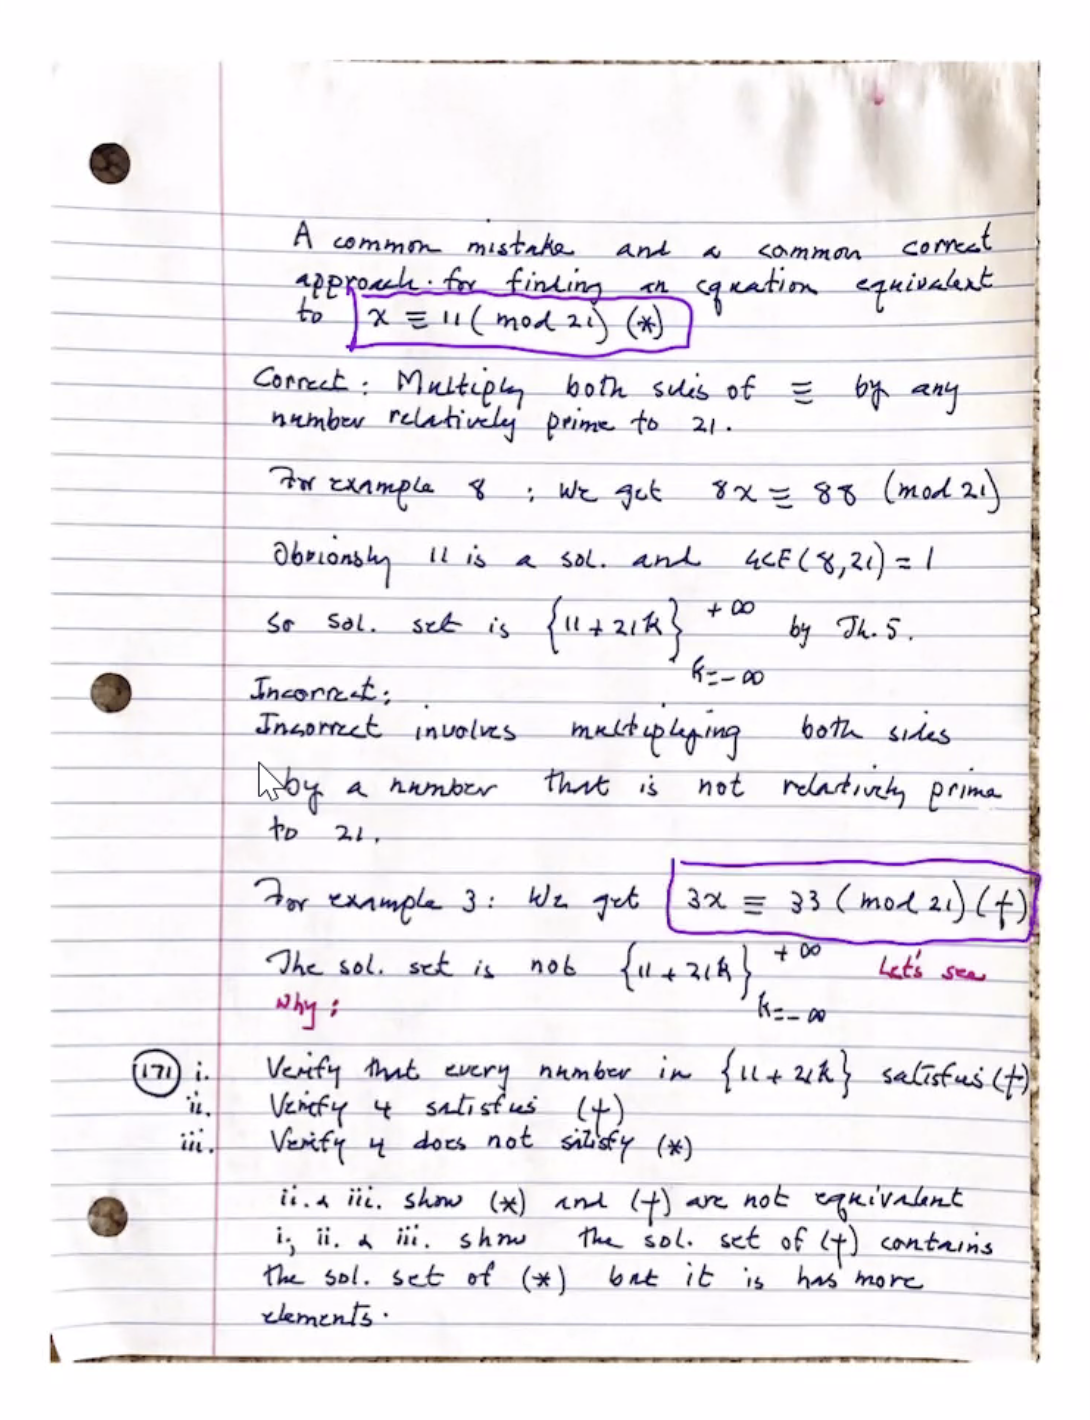 A common mistake and a common correct
approach for finding an equation equivalent
to x ≡ 11 (mod 21) (*)
Correct: Multiply both sides of ≡ by any
number relatively prime to 21.
For example 8 : We get 8x ≡ 88 (mod 21)
Obviously 11 is a sol. and GCF(8,21) = 1
so sol. set is {11 + 21k} +∞ k=-∞ by Th. 5.
Incorrect:
Incorrect involves multiplying both sides
by a number that is not relatively prime
to 21.
For example 3: We get 3x ≡ 33 (mod 21) (†)
The sol. set is not {11 + 21k} +∞ k=-∞ Let's see
why:
(171) i. Verify that every number in {11 + 21k} satisfies (†)
ii. Verify 4 satisfies (†)
iii. Verify 4 does not satisfy (*)
ii. & iii. show (*) and (†) are not equivalent
i, ii. & iii. show the sol. set of (†) contains
the sol. set of (*) but it is has more
elements.